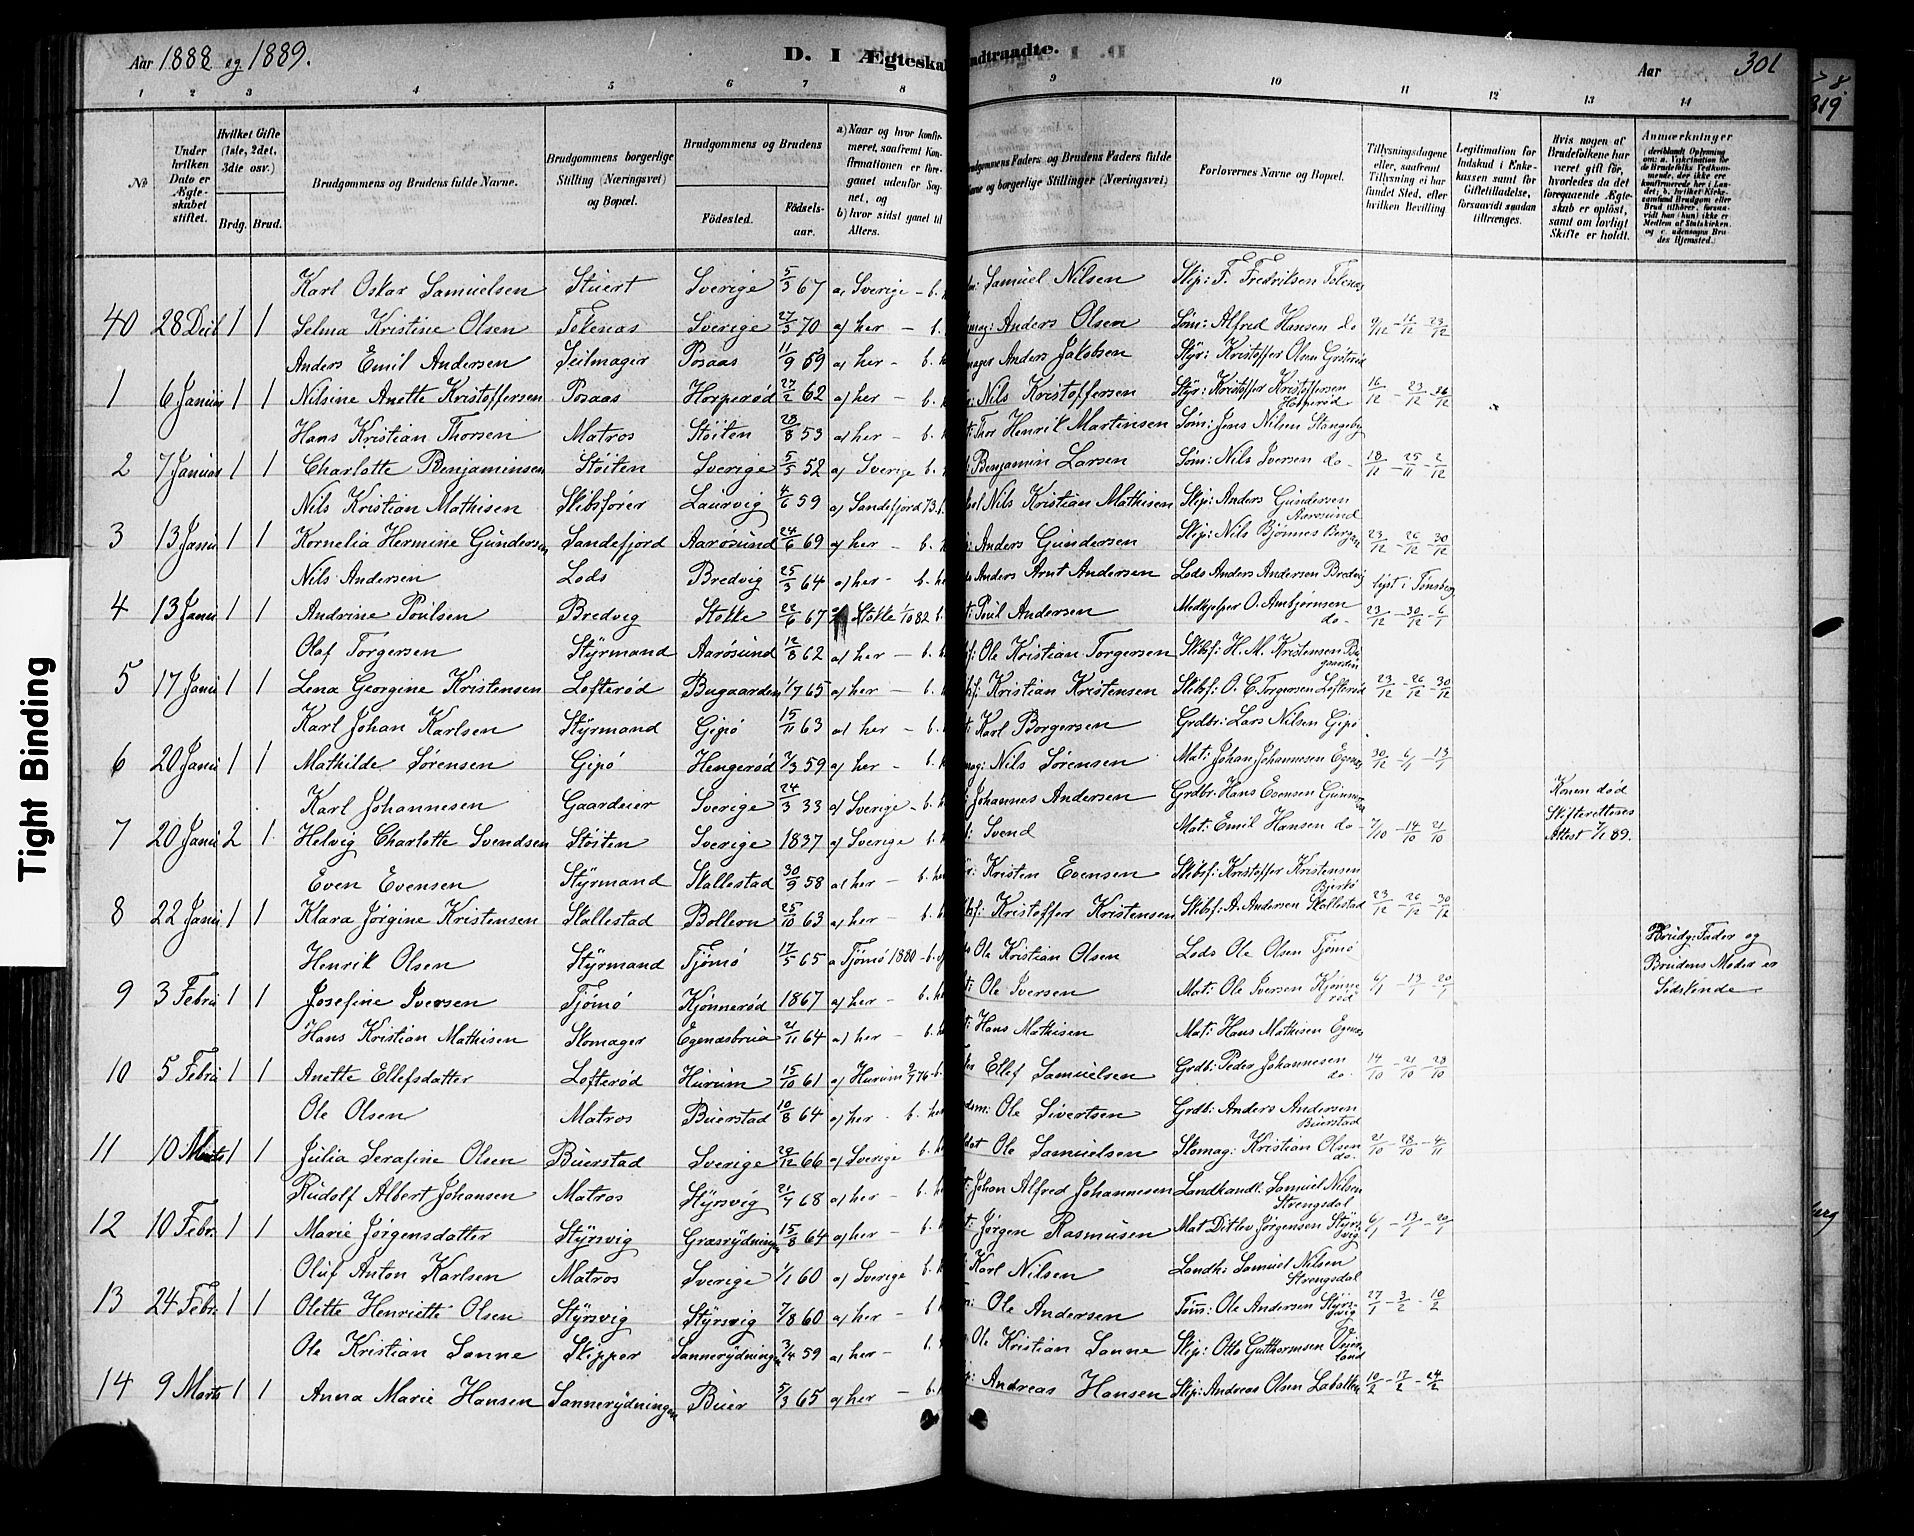 Aar 1888 og 1889.
D. I Ægteskab Indtraadte.
Aar
301
1 2 3 4 5 6 7 8 9 10 11 12 13 14
№
Under hvilken Dato er Ægteskabet stiftet.
Hvilket Gifte (1ste, 2det, 3die osv.)
Brdg. Brud.
Brudgommens og Brudens fulde Navne.
Brudgommens borgerlige Stilling (Næringsvei) og Bopæl.
Brudgommens og Brudens
Fødested.
Fødselsaar.
a) Naar og hvor konfirmeret, saafremt Konfirmationen er foregaaet udenfor Sognet, og
b) hvor sidst gaaet til Alters.
Brudgommens Faders og Brudens Faders fulde Navne og borgerlige Stillinger (Næringsvei)
Forlovernes Navne og Bopæl.
Tillysningsdagene eller, saafremt Tillysning ei har fundet Sted, efter hvilken Bevilling
Legitimation for Indskud i Enkekassen samt for Giftetilladelse, forsaavidt saadan tiltrænges.
Hvis nogen af Brudefolkene har været gift før, hvorledes da det foregaaende Ægteskab er opløst, samt om lovligt Skifte er holdt.
Anmærkninger
Karl Oskar Samuelsen Stuert Sverige 5/3 67 a) Sverige - b. Samuel Nilsen Skip: F. Fredriksen Tolenæs
40 28 Decb 1 1 Selma Kristine Olsen Tolenæs Sverige 27/3 70 a) her - b. Anders Olsen Søm: Alfred Hansen do 9/12 - 16/12 - 23/12
Anders Emil Andersen Seilmager Posaas 11/9 59 a) her - b. Anders Jakobsen Styr: Kristoffer Olsen
1 6 Januar 1 1 Nilsine Anette Kristoffersen Posaas Horperød 27/2 62 a) her - b. Nils Kristoffersen Styr: Kristoffer Kristoffersen Horperød 16/12 - 23/12 - 26/12
Hans Kristian Thorsen Matros Støiten 28/8 53 a) her - b. Thor Henrik Martinsen Søm: Jens Nilsen Stangeby
2 7 Januar 1 1 Charlotte Benjaminsen Støiten Sverige 5/5 52 a) Sverige b. Benjamin Larsen Søm: Nils Iversen do - 18/11 - 25/11 - 2/12
Nils Kristian Mathisen Skibsfører Laurvig 4/6 59 a) Sandefjord 73. Nils Kristian Mathisen Skip: Anders Gundersen Aarøsund
3 13 Janu 1 1 Kornelia Hermine Gundersen Sandefjord Aarøsund 24/6 69 a) her - b. Anders Gundersen Skip: Nils Bjønnes Bergan 23/12 - 26/12 - 30/12
Nils Andersen Lods Bredvig 25/3 64 a) her - b. Anders Arnt Andersen Lods Anders Andersen Bredvig lyst i Tønsberg
4 13 Janu 1 1 Andrine Poulsen Bredvig Stokke 22/6 67 a) Stokke 1/10 82 b. Poul Andersen Medhjelper O. Ambjørnsen do - 23/12 - 30/12 - 6/1
Olaf Torgersen Styrmand Aarøsund 12/8 62 a) her - b. Ole Kristian Torgersen Skibsf: H. M. Kristensen Bugaarden
5 17 Janu 1 1 Lena Georgine Kristensen Lofterød Bugaarden 1/7 65 a) her - b. Kristian Kristensen Skibsf: O. C. Torgersen Lofterød 23/12 - 26/12 - 30/12
Karl Johan Karlsen Styrmand Gipø 15/11 63 a) her - b. Karl Borgersen Grdbr: Lars Nilsen Gipø
6 20 Janu 1 1 Mathilde Sørensen Gipø Hengerød 7/3 59 a) her - b. Nils Sørensen Mat: Johan Johannesen Egenæs 30/12 - 6/1 - 13/1
Karl Johannesen Gaardeier Sverige 24/3 33 a) Sverige - b. Johannes Andersen Grdbr. Hans Evensen
Konen død
Skifterettens
Attest 7/1 89.
7 20 Janu 2 1 Helvig Charlotte Svendsen Støiten Sverige 1837 a) Sverige b. Svend Mat: Emil Hansen do - 7/10 - 14/10 - 21/10
Even Evensen Styrmand Skallestad 30/9 58 a) her - b. her Kristen Evensen Skibsf: Kristoffer Kristensen Bjerkø
8 22 Janu 1 1 Klara Jørgine Kristensen Skallestad Bollern 25/10 63 a) her - b. Kristoffer Kristensen Skibsf: A. Andersen Skallestad 23/12 - 26/12 - 30/12
Henrik Olsen Styrmand Tjømø 17/5 65 a Tjømø 1880 - b. Ole Kristian Olsen Lods Ole Olsen Tjømø
Brudg: Fader og
Brudens Moder er
Sødskende
9 3 Febru 1 1 Josefine Iversen Tjømø Kjønnerød 1867 a) her - b. her Ole Iversen Mat: Ole Iversen Kjønnerød 6/1 - 13/1 - 20/1
Hans Kristian Mathisen Skomager Egenæsbrua 21/11 64 a) her - b. Hans Mathisen Mat: Hans Mathisen Egenæs
10 5 Febru 1 1 Anette Ellefsdatter Lofterød Hurum 15/10 61 a) Hurum 76 - b. Ellef Samuelsen Grdb: Peder Johannesen do - 14/10 - 21/10 - 28/10
Ole Olsen Matros Buerstad 10/8 64 a) her - b. her Ole Sivertsen Grdb: Anders Andersen Buerstad
11 10 Marts 1 1 Julia Serafine Olsen Buerstad Sverige 22/12 66 a) Sverige b. Ole Samuelsen Skomag: Kristian Olsen do. 21/10 - 28/10 - 4/11
Rudolf Albert Johansen Matros Styrsvig 21/7 68 a) her - b. Johan Alfred Johannesen Landhandl: Samuel Nilsen Strengsdal
12 10 Febr. 1 1 Marie Jørgensdatter Styrsvig Græsrydningen 15/8 64 a) her - b. Jørgen Rasmusen Mat Ditlev Jørgensen Styrsvig 6/1 - 13/1 - 20/1
Oluf Anton Karlsen Matros Sverige 1/1 60 a) Sverige b. Karl Nilsen Landh: Samuel Nilsen Strengsdal
13 24 Febr. 1 1 Olette Henriette Olsen Styrsvig Styrsvig 7/8 60 a) her - b. Ole Andersen Tøm: Ole Andersen Styrsvig 27/1 - 3/2 - 10/2
Ole Kristian Sanne Skipper Sannerydningen 3/4 59 a) her - b. Ole Kristian Sanne Skip: Otto Guttormsen Veierland
14 9 Marts 1 1 Anna Marie Hansen Sannerydningen Buer 5/3 65 a) her - b. Andreas Hansen Skip: Andreas Olsen Labakken 10/2 - 17/2 - 24/2
Tight Binding